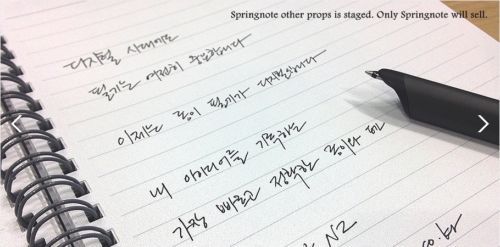 Springnote other props is staged. Only Springnote will sell.
디지털 시대에도
필기는 여전히 중요합니다
이제는 종이 필기가 디지털입니다
내 아이디어를 기록하는
가장 빠르고 정확한 종이와 펜
N2
co.kr